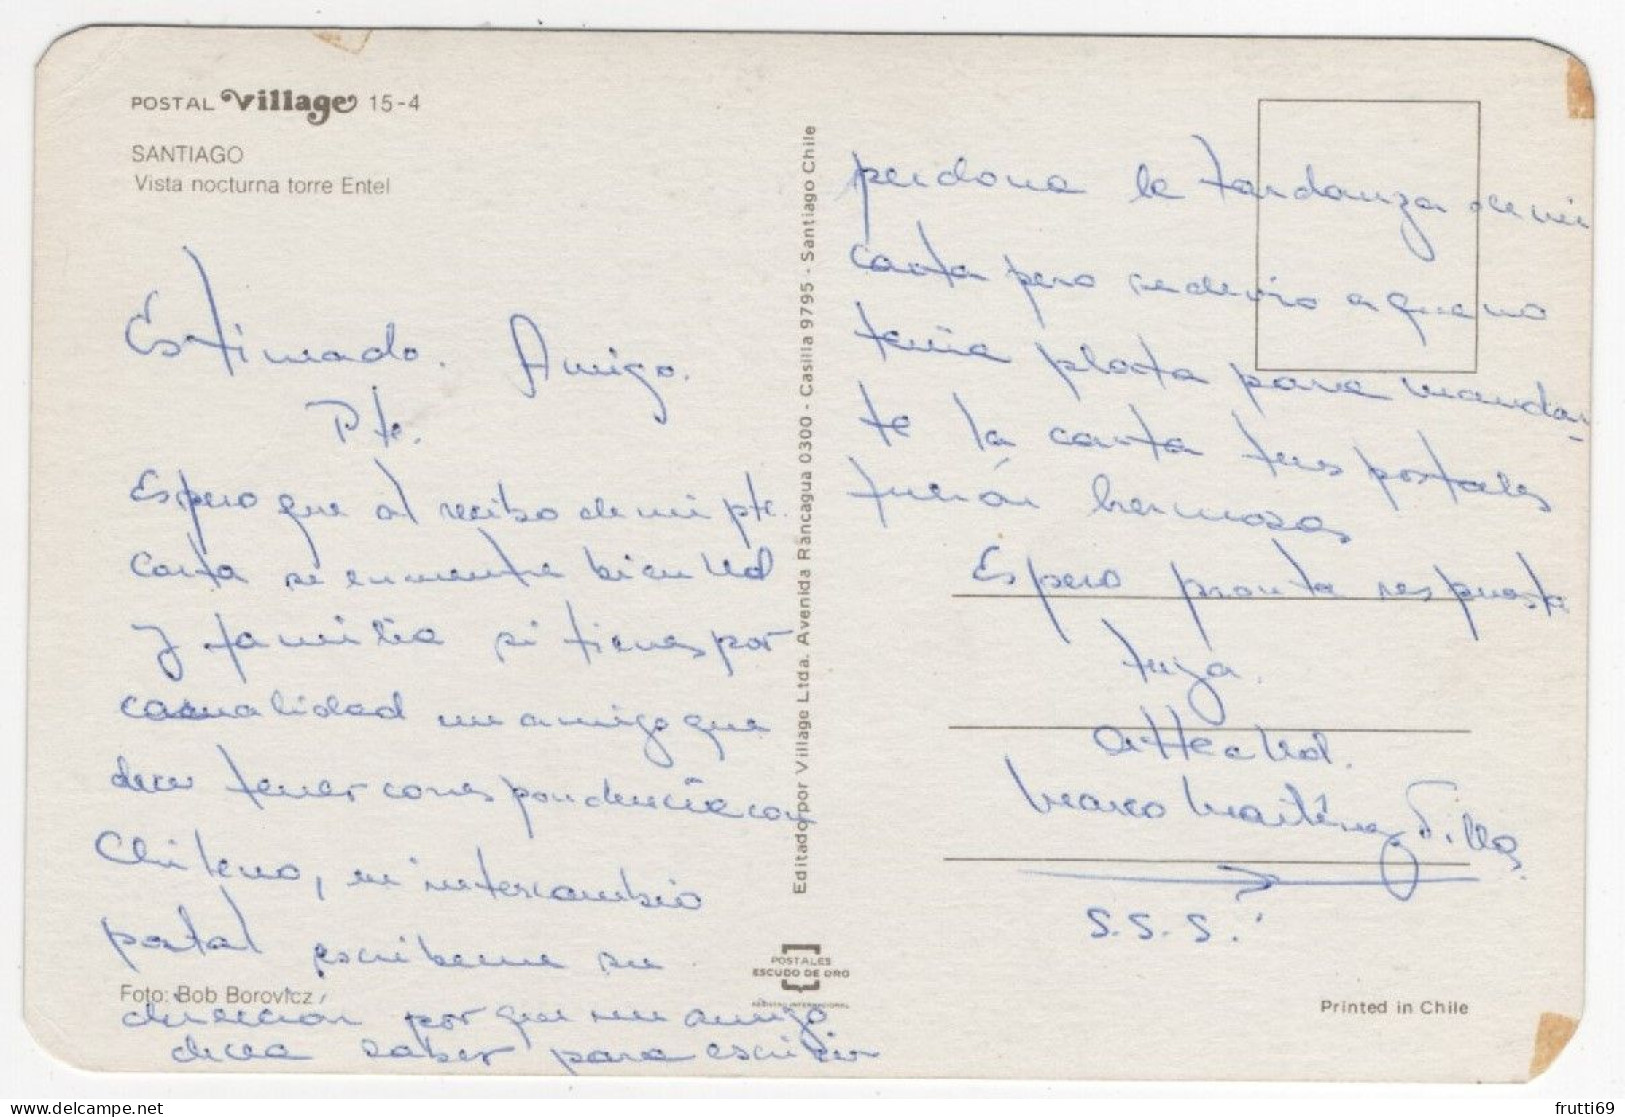 POSTAL Village 15-4
SANTIAGO
Vista nocturna torre Entel
Estimado. Amigo.
Pte.
Espero que al recibo de mi pte.
carta se encuentre bien Ud
y familia si tienes por
casualidad un amigo que
dece tener correspondencia con
Chileno, en intercambio
postal escribeme su
dirección por que un amigo
dicea saber para escribir
Foto: Bob Borovicz
Editado por Village Ltda. Avenida Rancagua 0300 - Casilla 9795 - Santiago Chile
POSTALES
ESCUDO DE ORO
REGISTRO INTERNACIONAL
perdona la tardanza de mi
carta pero se devio a que no
tenia plata para mandar-
te la carta tus postales
fuerón hermosas
Espero pronta respuesta
tuya.
atte a Ud.
Marco Martínez
S.S.S.
Printed in Chile
frutti69